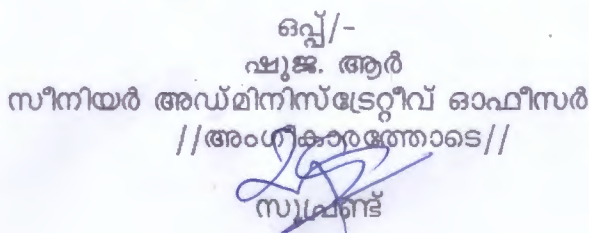 ഒപ്പ്/-
ഷുജ. ആർ
സീനിയർ അഡ്മിനിസ്ട്രേറ്റീവ് ഓഫീസർ
//അംഗീകാരത്തോടെ//
സൂപ്രണ്ട്